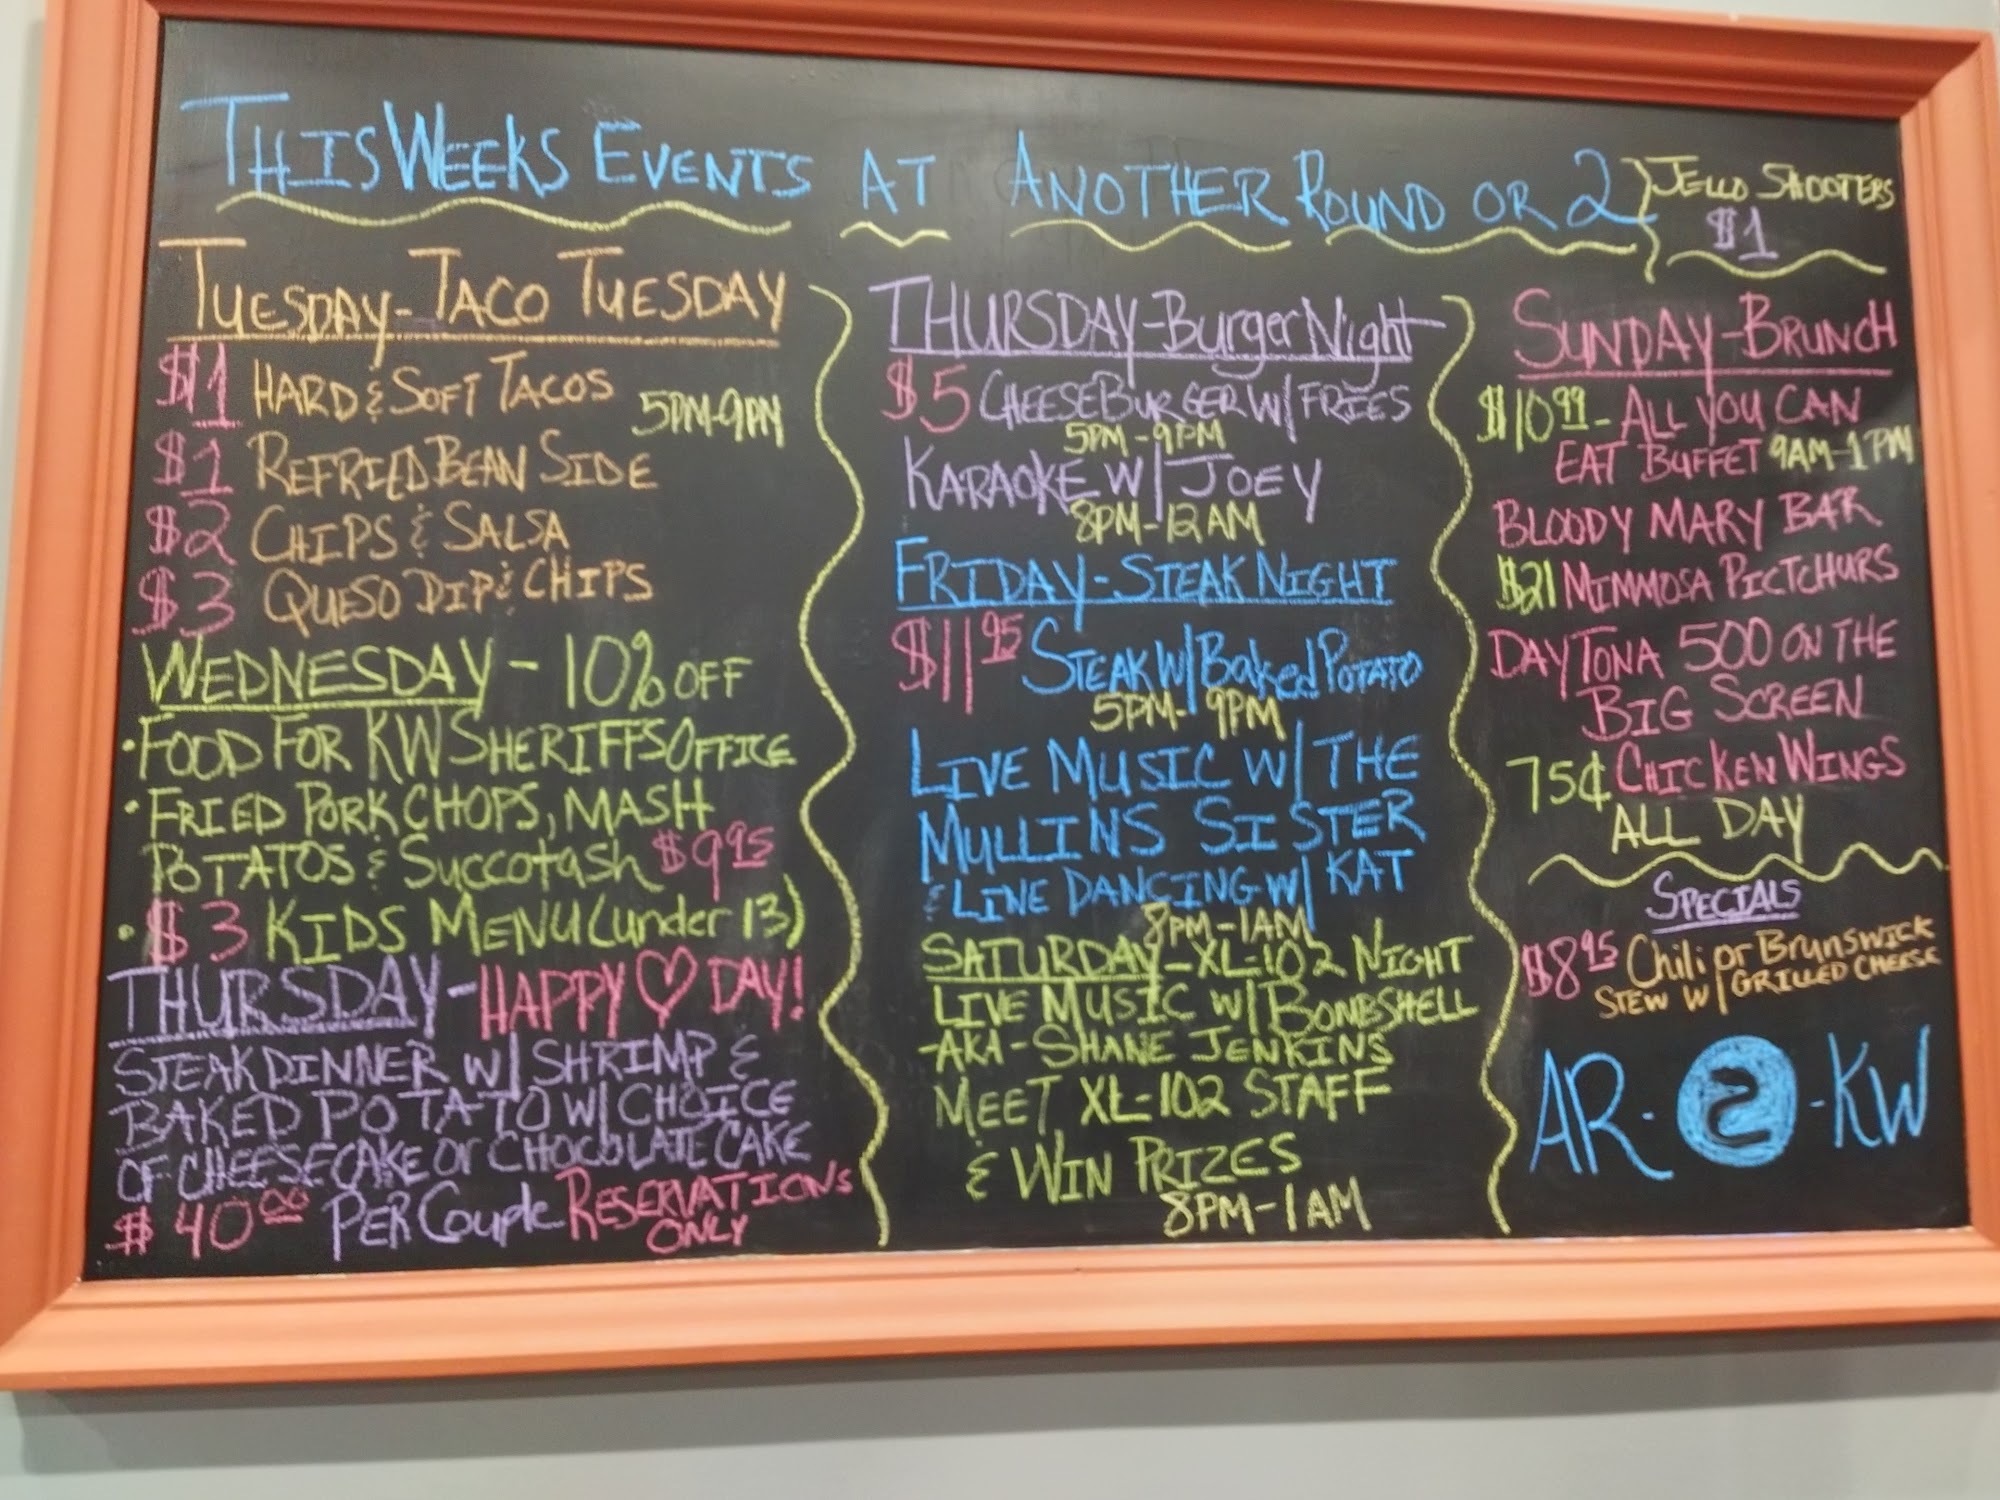 THIS WEEKS EVENTS AT ANOTHER ROUND OR 2
JELLO SHOOTERS
$1
TUESDAY-TACO TUESDAY
$1 HARD & SOFT TACOS
5PM-9PM
$1 REFRIED BEAN SIDE
$2 CHIPS & SALSA
$3 QUESO DIP & CHIPS
WEDNESDAY - 10% OFF
• FOOD FOR KW SHERIFFS OFFICE
• FRIED PORK CHOPS, MASH
POTATOS & Succotash $9.95
• $3 KIDS MENU (under 13)
THURSDAY-HAPPY ♡ DAY!
STEAK DINNER W/ SHRIMP &
BAKED POTATO W/ CHOICE
OF CHEESECAKE or CHOCOLATE CAKE
$40.00 PER Couple RESERVATIONS
ONLY
THURSDAY-Burger Night
$5 CHEESEBURGER W/ FRIES
5PM-9PM
KARAOKE W/ JOEY
8PM-12AM
FRIDAY-STEAK NIGHT
$11.95 STEAK W/ Baked POTATO
5PM-9PM
LIVE MUSIC W/ THE
MULLINS SISTER
& LINE DANCING W/ KAT
8PM-1AM
SATURDAY-XL-102 NIGHT
LIVE MUSIC W/ BOMBSHELL
-AKA-SHANE JENKINS
MEET XL-102 STAFF
& WIN PRIZES
8PM-1AM
SUNDAY-BRUNCH
$10.99-ALL YOU CAN
EAT BUFFET 9AM-1PM
BLOODY MARY BAR
$21 MIMMOSA PICTCHURS
DAYTONA 500 ON THE
BIG SCREEN
75¢ CHICKEN WINGS
ALL DAY
SPECIALS
$8.95 Chili or BRUNSWICK
STEW W/ GRILLED CHEESE
AR-2-KW